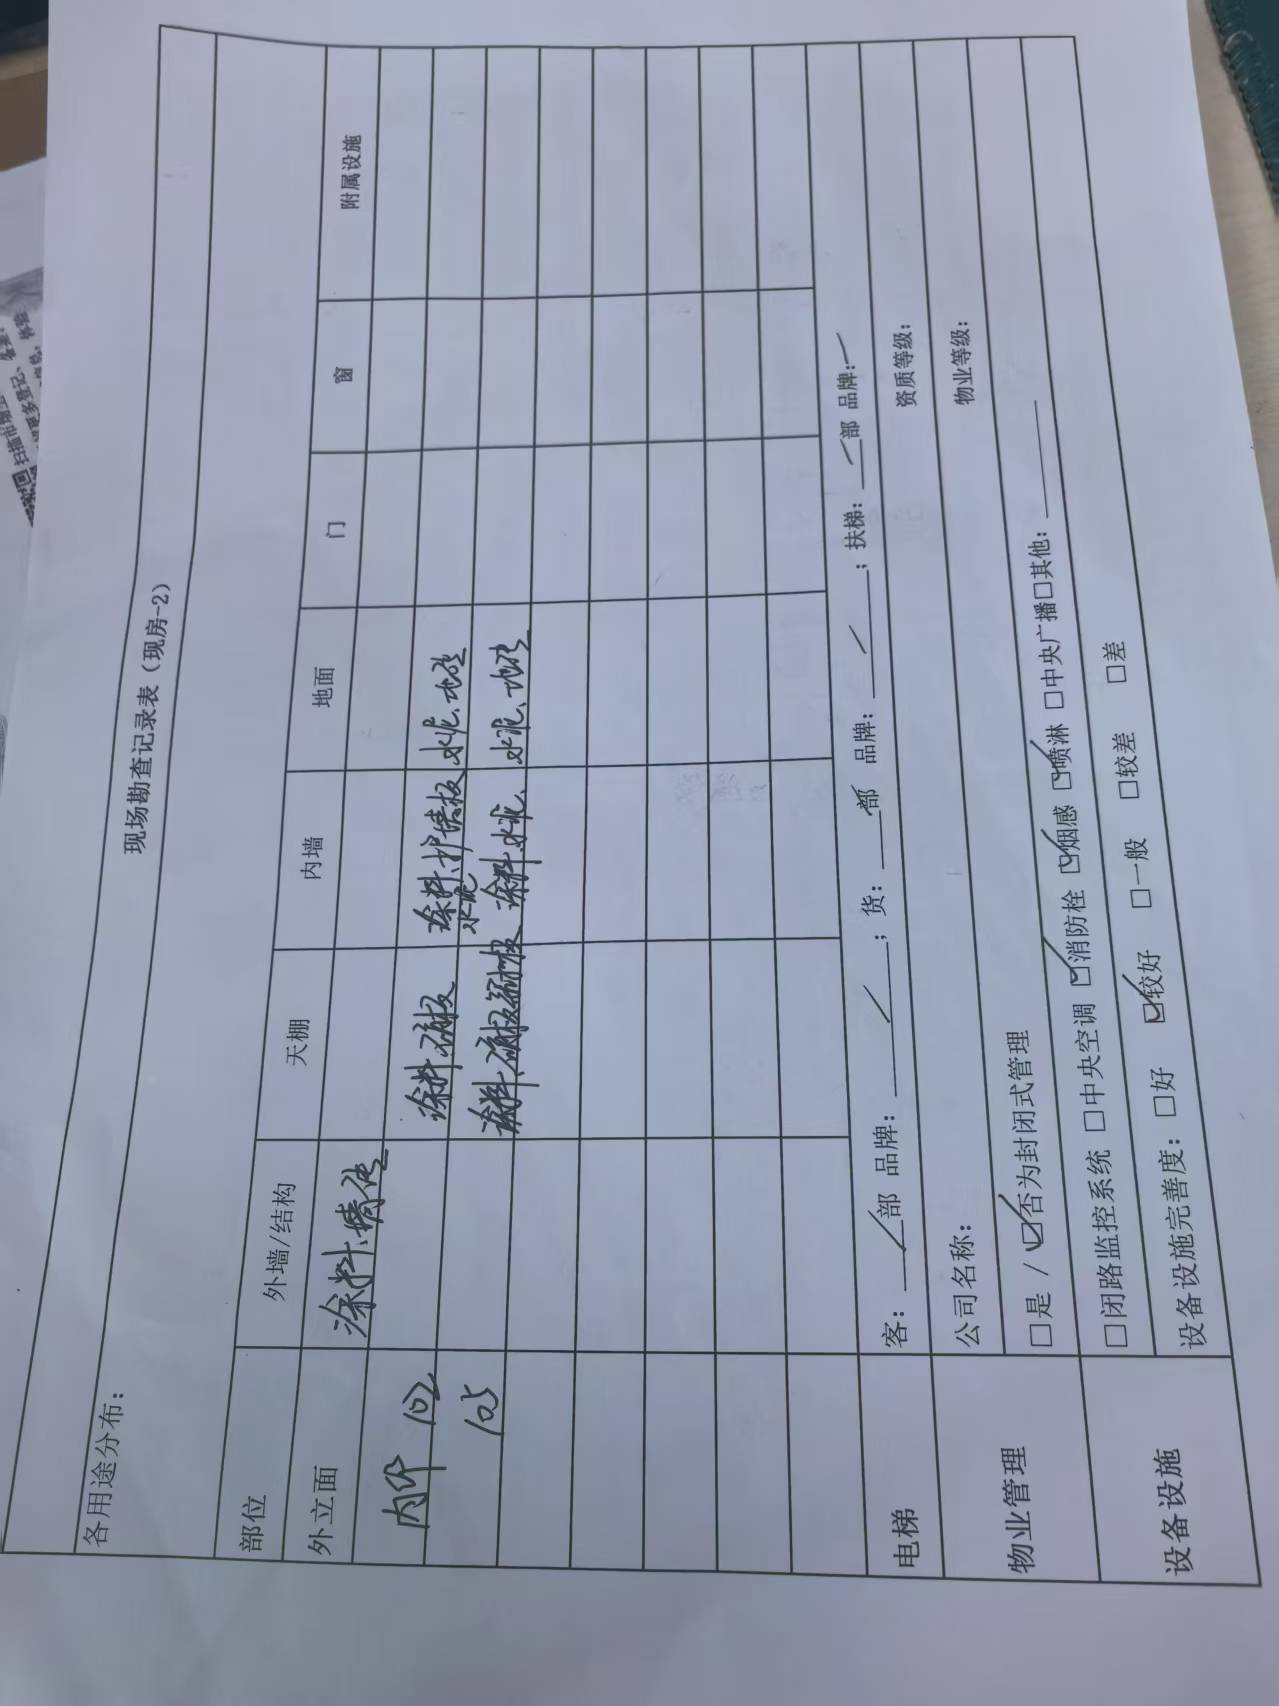 现场勘查记录表（现房-2）
各用途分布：
部位 外墙/结构 天棚 内墙 地面 门 窗 附属设施
外立面 涂料、墙砖
102 涂料、 涂料、护墙板 水泥、地砖
水泥
105 涂料、 涂料、水泥、 水泥、地砖
电梯 客：/部 品牌：/；货：/部 品牌：/；扶梯：/部 品牌：/
物业管理 公司名称： 资质等级：
□是 / ☑否为封闭式管理 物业等级：
设备设施 □闭路监控系统 □中央空调 ☑消防栓 ☑烟感 ☑喷淋 □中央广播□其他：
设备设施完善度：□好 ☑较好 □一般 □较差 □差